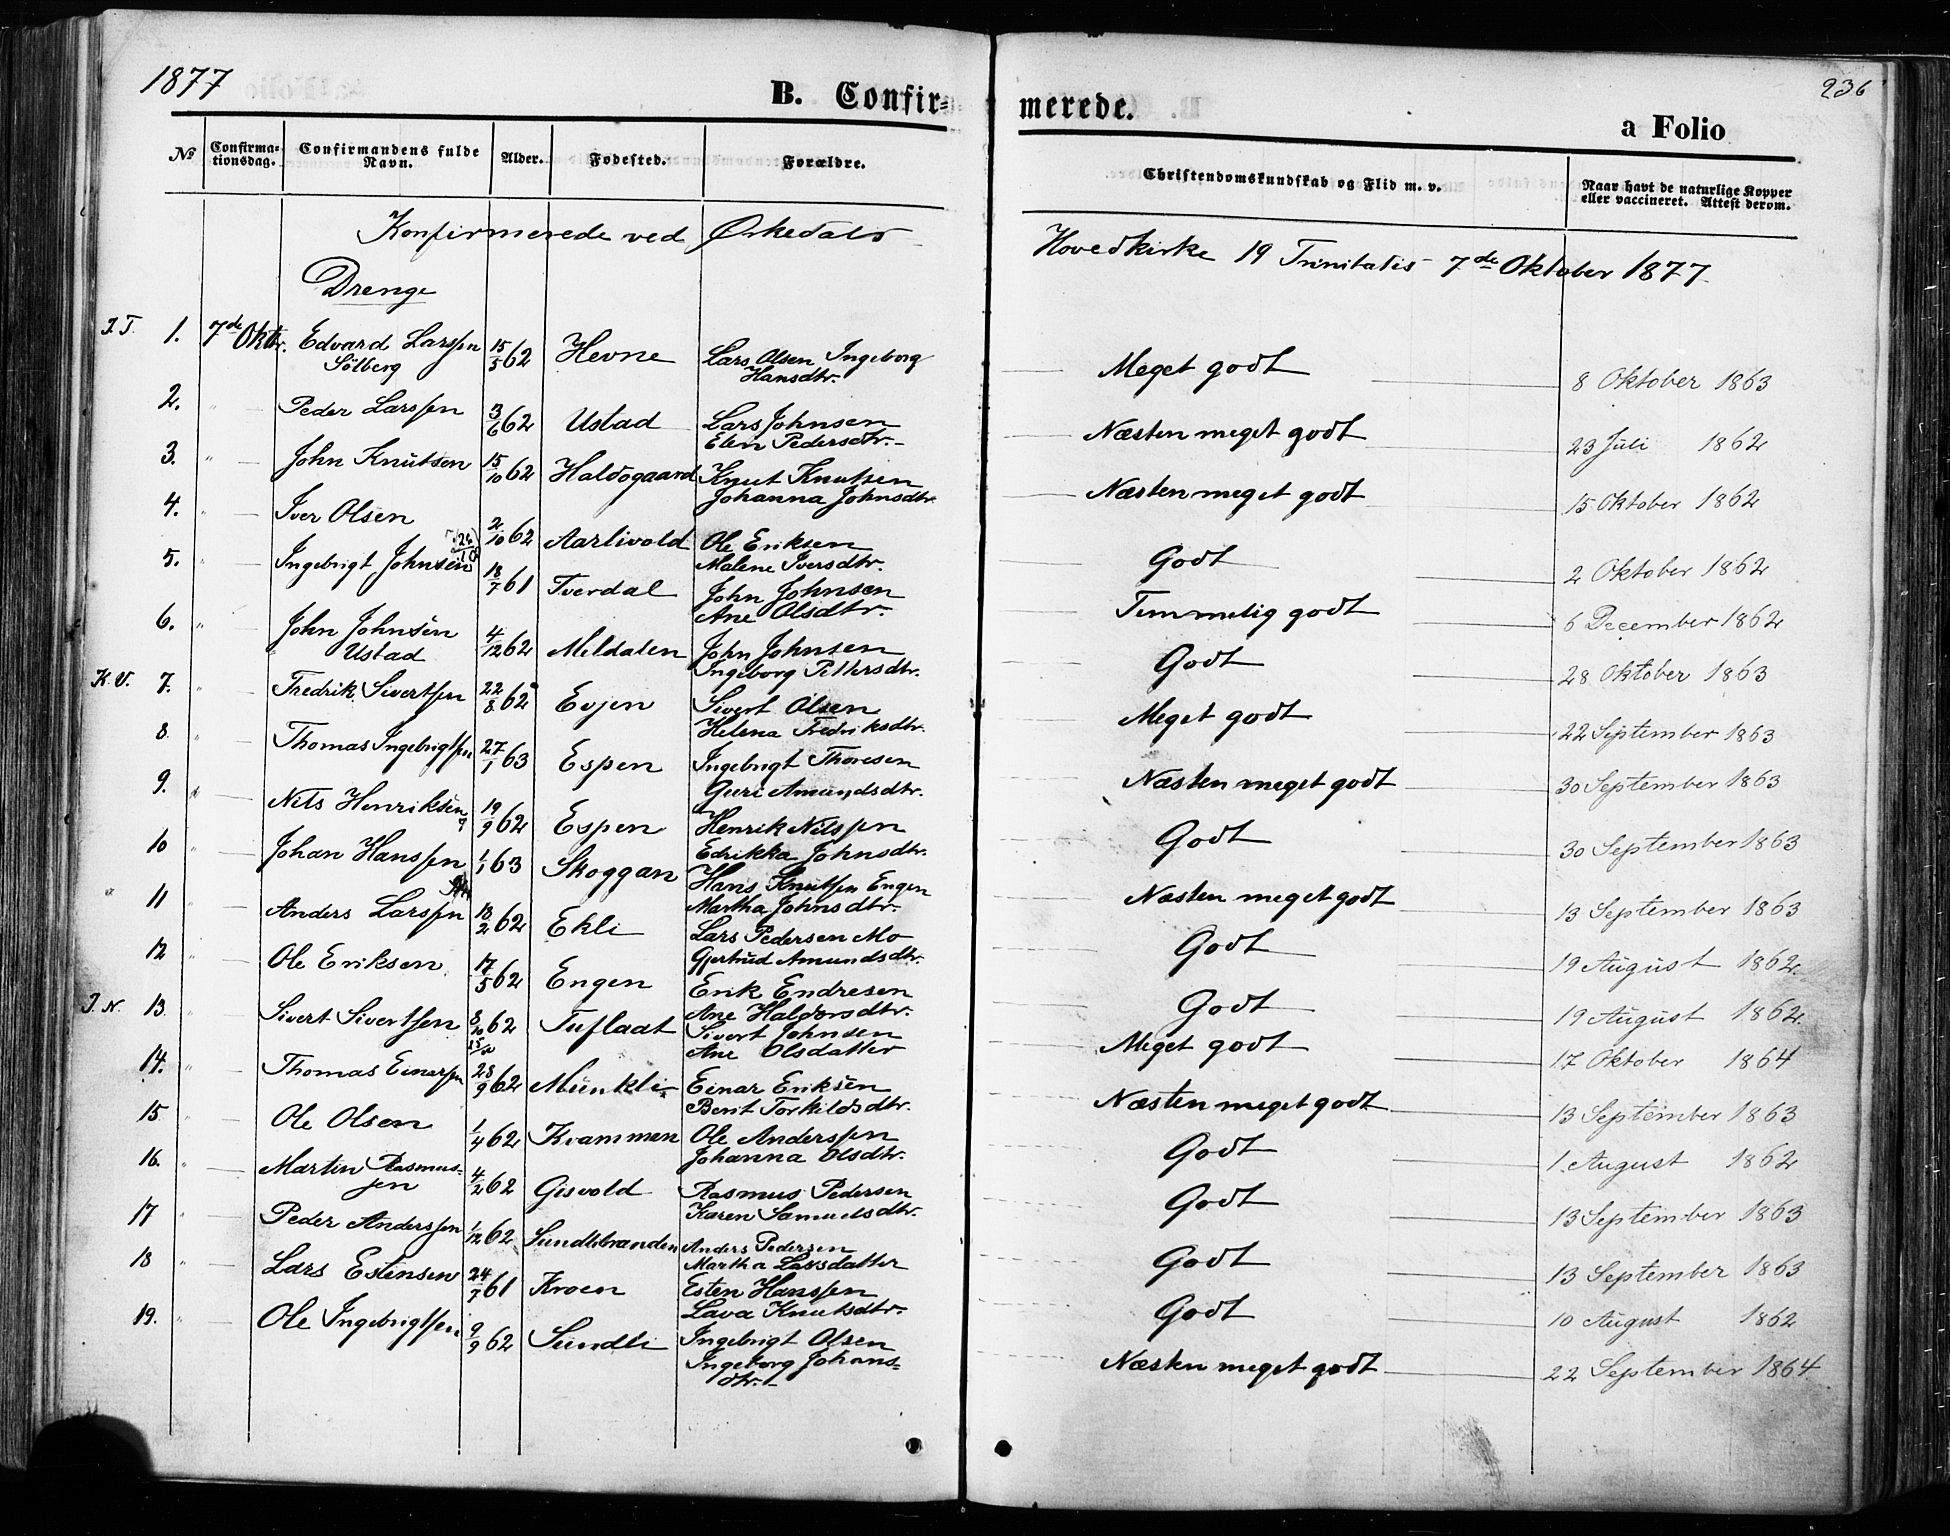 1877
236
B. Confir=
merede.
a Folio
No
Confirma=
tionsdag.
Confirmandens fulde
Navn.
Alder.
Fødested.
Forældre.
Christendomskundskab og Flid m. v.
Naar havt de naturlige Kopper
eller vaccineret. Attest derom.
Konfirmerede ved Ørkedals Hovedkirke 19 Trinitatis 7de Oktober 1877
Drenge
I.T. 1. 7de Oktbr. Edvard Larssen 15/5 62 Hevne Lars Olsen Ingeborg Meget godt 8 Oktober 1863
Sölberg Hansdtr.
2. " Peder Larssen 3/6 62 Ustad Lars Johnsen Næsten meget godt 23 Juli 1862
Elen Pedersdtr.
3. " John Knutsen 15/10 62 Haldogaard Knut Knutsen Næsten meget godt 15 Oktober 1862
Johanna Johnsdtr.
4. " Iver Olsen 2/10 62 Aarlivold Ole Eriksen Godt 2 Oktober 1862
Malene Iversdtr.
5. " Ingebrigt Johnsen 18/7 61 Tverdal John Johnsen Temmelig godt 6 December 1862
Ane Olsdtr.
6. " John Johnsen 4/12 62 Meldalen John Johnsen Godt 28 Oktober 1863
Ustad Ingeborg Pettersdtr.
K.V. 7. " Fredrik Sivertsen 22/8 62 Evjen Sivert Olsen Meget godt 22 September 1863
Helena Fredriksdtr.
8. " Thomas Ingebrigtsen 27/1 63 Espen Ingebrigt Thoresen Næsten meget godt 30 September 1863
Guri Amundsdtr.
9. " Nils Henriksen 19/9 62 Espen Henrik Nilssen Godt 30 September 1863
Edrikka Johnsdtr.
10 " Johan Hanssen 1/1 63 Skoggan Hans Knutsen Engen Næsten meget godt 13 September 1863
Martha Johnsdtr.
" 11 Anders Larssen 18/2 62 Ekli Lars Pedersen Mo Godt 19 August 1862
Gjertrud Amundsdtr.
12 " Ole Eriksen 17/5 62 Engen Erik Endresen Godt 19 August 1862
Ane Haldorsdtr.
I.N. 13. " Sivert Sivertsen 8/10 62 Tuflaat Sivert Johnsen Meget godt 17 Oktober 1864
Ane Olsdatter
14. " Thomas Einarsen 28/9 62 Munkli Einar Eriksen Næsten meget godt 13 September 1863
Berit Torkildsdtr.
15 " Ole Olsen 1/4 62 Kvammen Ole Anderssen Godt 1. August 1862
Johanna Olsdtr.
16. " Martin Rasmus- 4/2 62 Gisvold Rasmus Pedersen Godt 13 September 1863
sen Karen Samuelsdtr.
17 " Peder Anderssen 1/12 62 Sundlibranden Anders Pedersen Godt 13 September 1863
Martha Larsdatter
18 " Lars Estensen 24/7 61 Kroen Esten Hanssen Godt 10 August 1862
Lava Knutsdtr.
19. " Ole Ingebrigtsen 9/9 62 Sundli Ingebrigt Olsen Næsten meget godt 22 September 1864
Ingeborg Johans=
dtr.